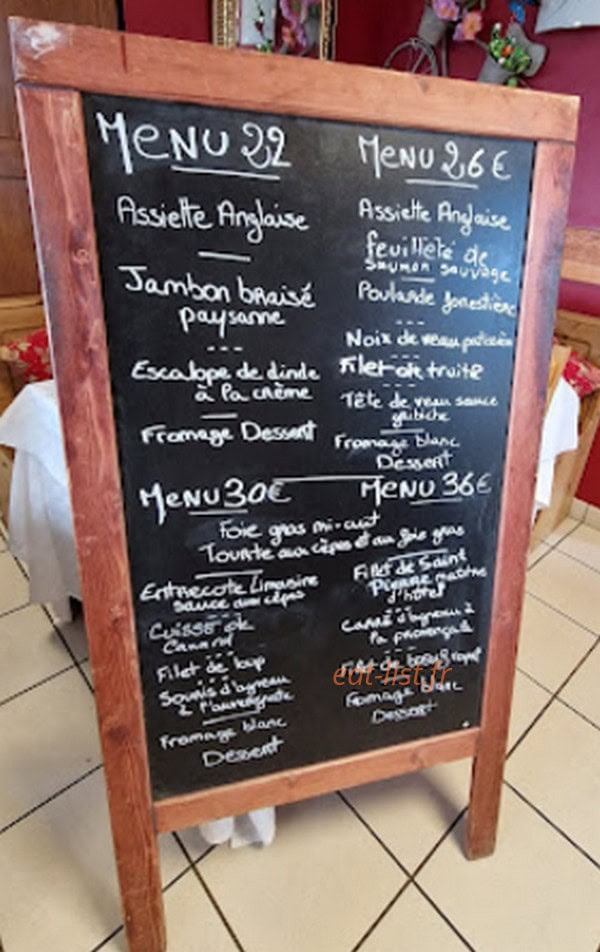 Menu 22
Assiette Anglaise
Jambon braisé
paysanne
Escalope de dinde
à la crème
Fromage Dessert
Menu 26€
Assiette Anglaise
feuilleté de
saumon sauvage
Poularde forestière
Noix de veau
Filet de truite
Tête de veau sauce
gribiche
Fromage blanc
Dessert
Menu 30€
Menu 36€
Foie gras mi-cuit
Tourte aux cèpes et au foie gras
Entrecote Limousine
sauce aux cèpes
Cuisse de
Canard
Filet de loup
Souris d'agneau
à l'auvergnate
Fromage blanc
Dessert
Filet de Saint
Pierre
d'hôtel
Carré d'agneau à
la provençale
Filet de
Fromage blanc
Dessert
eut-list.fr